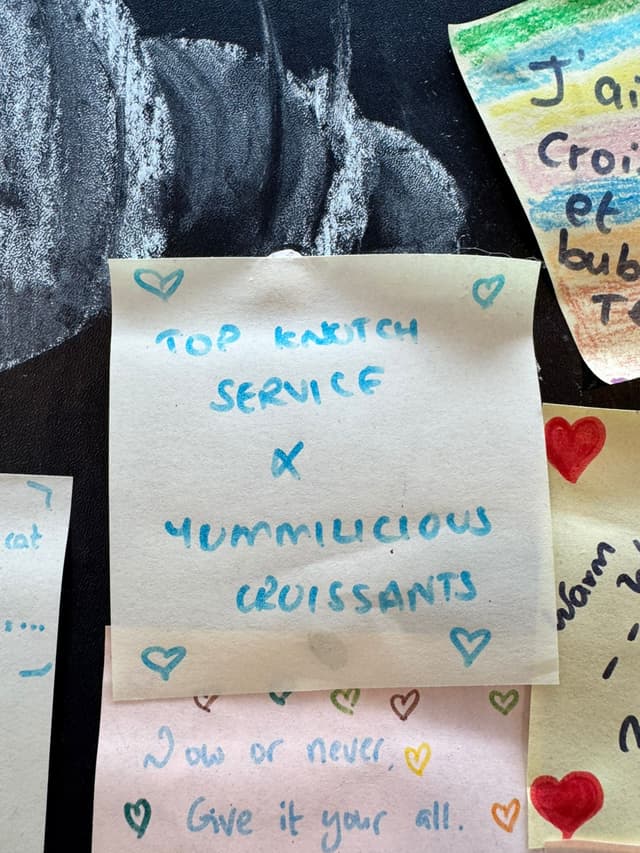 TOP KNOTCH
SERVICE
&
YUMMILICIOUS
CROISSANTS
Now or never,
Give it your all.
J'ai
Croi
et
bub
Te
cat
Warm